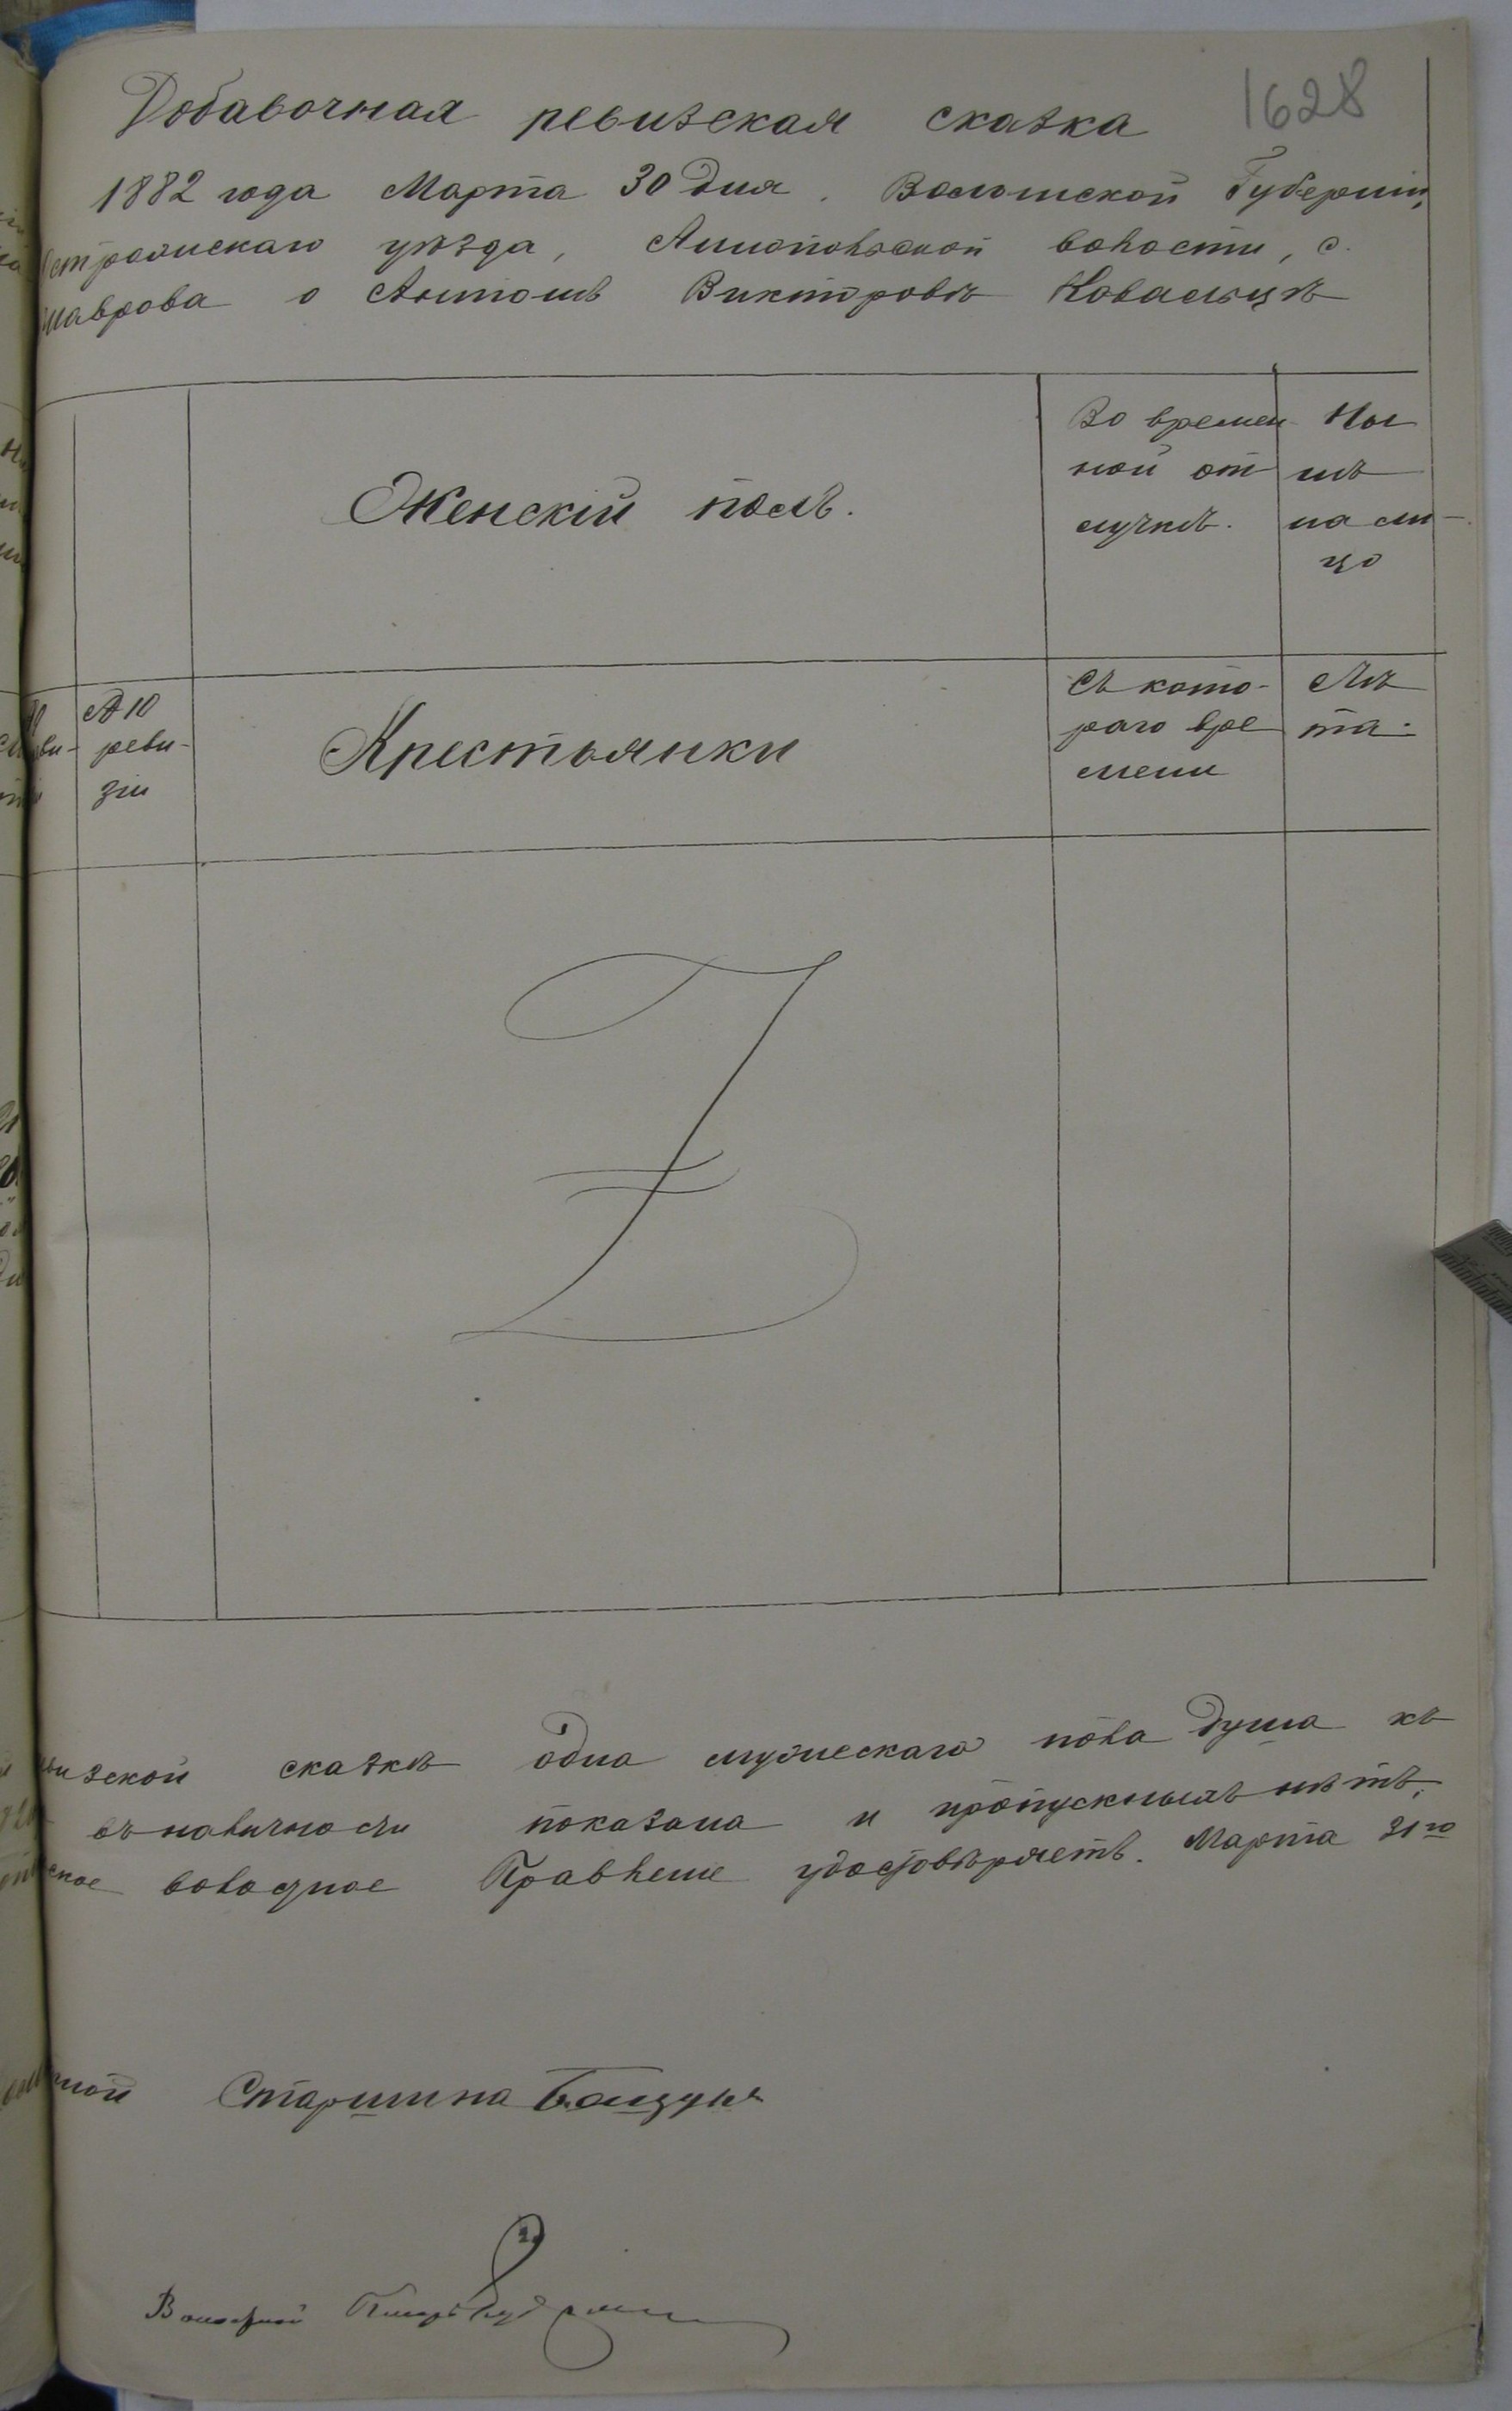 1628
Добавочная ревизская сказка
1882 года Марта 30 дня. Волынской Губерніи,
Острожскаго уѣзда, Аннопольской волости, с.
маврова о Антонѣ Викторовѣ Ковальцѣ
Женскій полъ.
Во времен-
ной от
лучкѣ.
Ны
нѣ
на ли-
цо
№ 10
реви-
зіи
Крестьянки
Съ кото-
раго вре
мени
Лѣ
та.
визской сказкѣ одна мужескаго пола душа къ
въ наличности показана и пропускныхъ нѣтъ,
ское волостное Правленіе удостовѣряетъ. Марта 31го
ной Старшина
Волостной Писарь